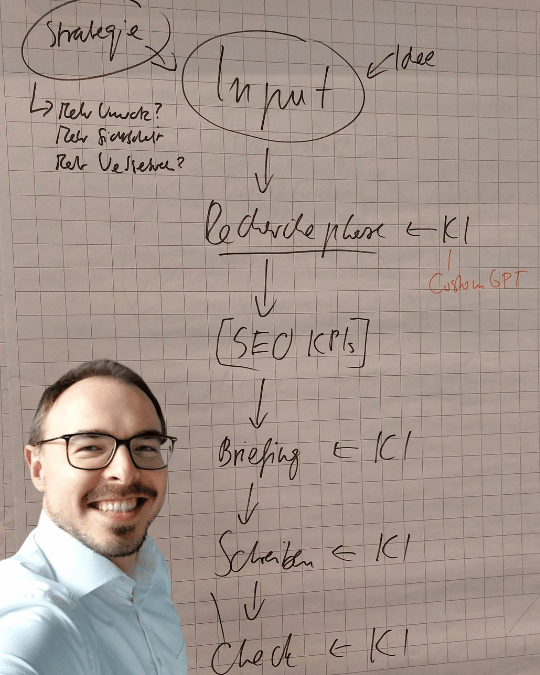 Strategie
Input
Idee
Mehr Umsatz?
Mehr Sichtbarkeit
Mehr Verstehen?
Recherchephase ← KI
Custom GPT
[SEO KPIs]
Briefing ← KI
Schreiben ← KI
Check ← KI